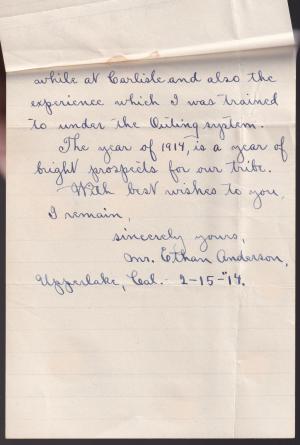 while at Carlisle and also the
experience which I was trained
to under the Outing system.
The year of 1914, is a year of
bright prospects for our tribe.
With best wishes to you,
I remain,
sincerely yours,
Mr. Ethan Anderson,
Upperlake, Cal. - 2-15-"14.